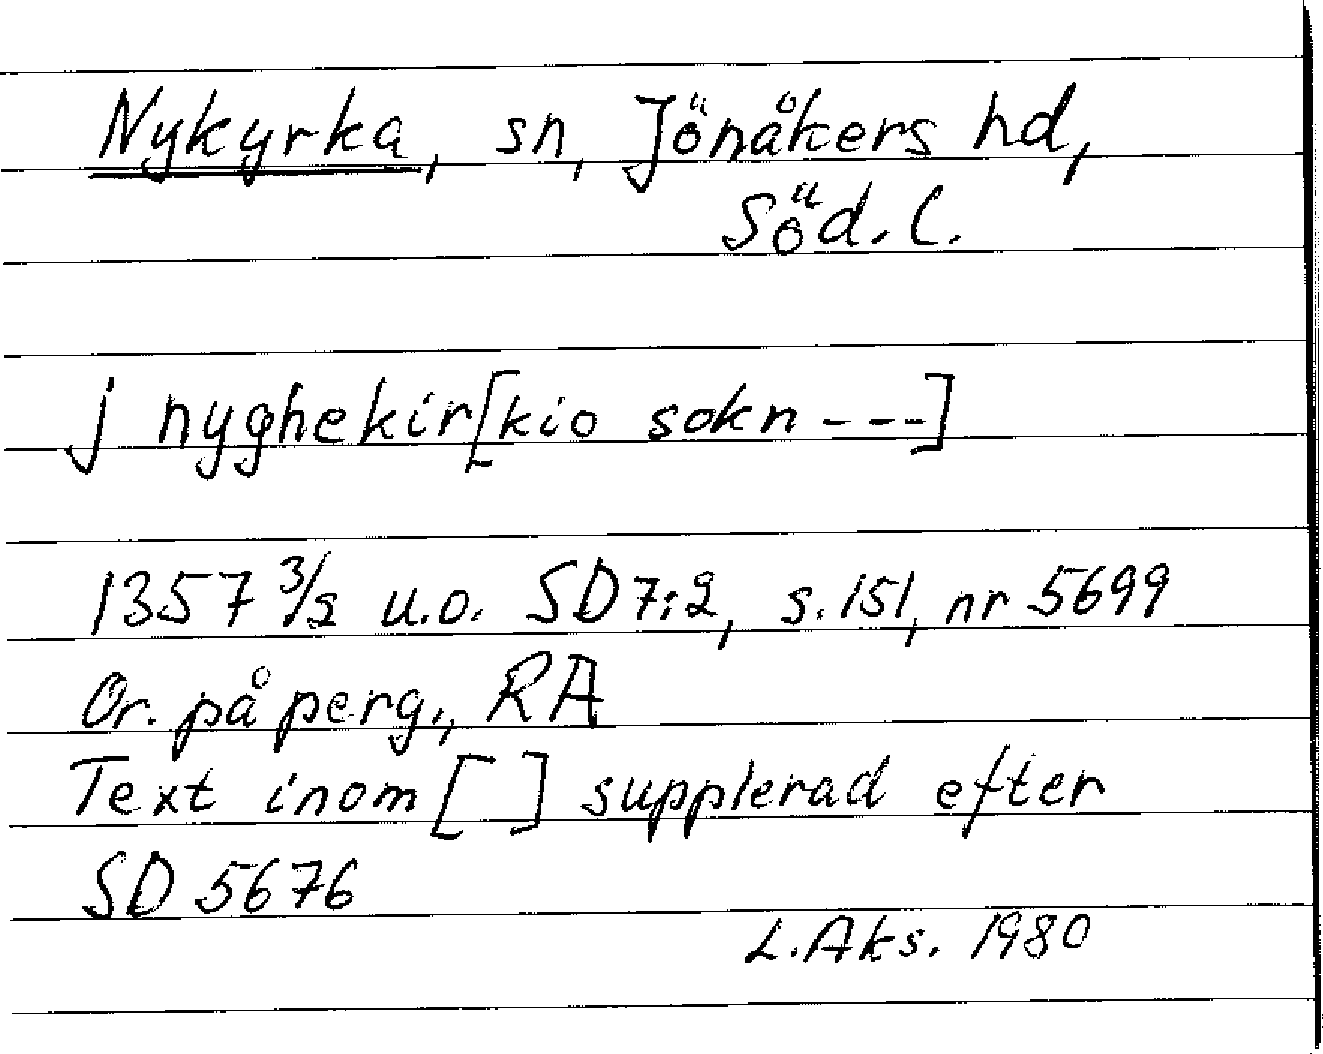 Nykyrka, sn, Jönåkers hd,
Söd. l.
j nyghekir[kio sokn ---]
1357 3/2 u.o. SD 7:2, s. 151, nr 5699
Or. på perg., RA
Text inom [ ] supplerad efter
SD 5676
L. Aks. 1980